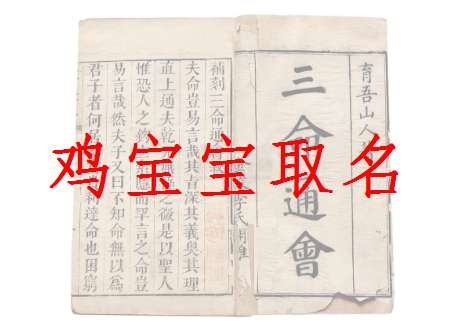 鸡宝宝取名
育吾山人
三命通會
李氏
補刻三命通會
夫命豈易言哉其旨深其義奧其理
直上通夫乾之微是以聖人
惟恐人之而罕言之命豈
易言哉然夫子又曰不知命無以爲
君子者何利達命也困窮